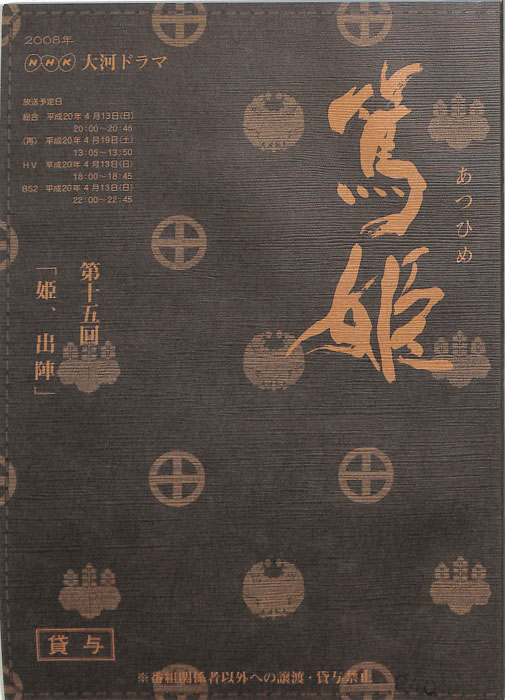 2008年
NHK 大河ドラマ
放送予定日
総合 平成20年4月13日(日)
20:00〜20:45
(再) 平成20年4月19日(土)
13:05〜13:50
HV 平成20年4月13日(日)
18:00〜18:45
BS2 平成20年4月13日(日)
22:00〜22:45
篤姫
あつひめ
第十五回
「姫、出陣」
貸与
※番組関係者以外への譲渡・貸与禁止